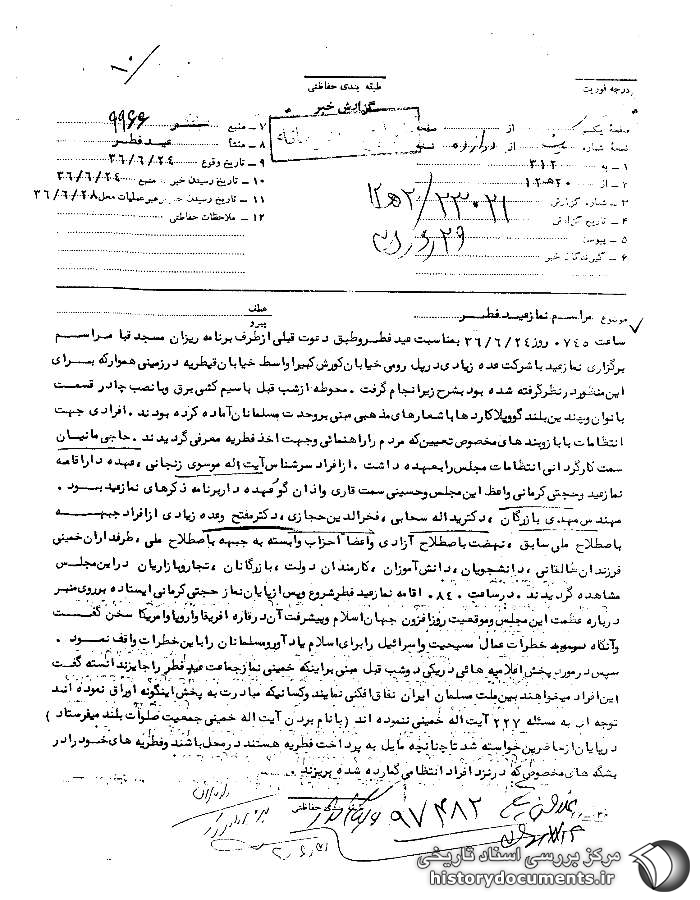 درجه فوریت
طبقه بندی حفاظتی
گزارش خبر
صفحهٔ یکم از صفحه
نسخهٔ شماره از نسخه
۱ – به ۳۱۲
۲ – از ۲۰ه۱۲
۳ – شماره گزارش ۲۳۰۲۱/۲۰ه۱۲
۴ – تاریخ گزارش
۵ – پیوست
۶ – گیرندگان خبر
۷ – منبع ۹۹۶۶
۸ – منشأ عید فطر
۹ – تاریخ وقوع ۳۶/۶/۲۴
۱۰ – تاریخ رسیدن خبر به منبع ۳۶/۶/۲۴
۱۱ – تاریخ رسیدن خبر به رهبر عملیات محل ۳۶/۶/۲۸
۱۲ – ملاحظات حفاظتی
موضوع مراسم نماز عید فطر
عطف
پیرو
ساعت ۰۷۴۵ روز ۳۶/۶/۲۴ بمناسبت عید فطر و طبق دعوت قبلی از طرف برنامه ریزان مسجد قبا مراسم
برگزاری نماز عید با شرکت عده زیادی در پل رومی خیابان کورش کبیر اواسط خیابان قیطریه در زمینی هموار که برای
این منظور در نظر گرفته شده بود بشرح زیر انجام گرفت . محوطه از شب قبل با سیم کشی برق و با نصب چادر قسمت
بانوان و چندین بلند گو و پلاکارد ها با شعار های مذهبی مبنی بر وحدت مسلمانان آماده کرده بودند . افرادی جهت
انتظامات با بازوبند های مخصوص تعیین که مردم را راهنمائی وجهت اخذ فطریه معرفی گردیدند . حاجی مانیان
سمت کارگردانی انتظامات مجلس را بعهده داشت . از افراد سرشناس آیت اله موسوی زنجانی ، عهده دار اقامه
نماز عید و حجتی کرمانی واعظ این مجلس وحسینی سمت قاری واذان گو عهده دار برنامه ذکرهای نماز عید بود .
مهندس مهدی بازرگان ، دکتر یداله سحابی ، فخرالدین حجازی ، دکتر مفتح وعده زیادی از افراد جبهه
باصطلاح ملی سابق ، نهضت باصطلاح آزادی واعضاء احزاب وابسته به جبهه باصطلاح ملی ، طرفداران خمینی
فرزندان طالقانی ، دانشجویان ، دانش آموزان ، کارمندان دولت ، بازرگانان ، تجار و بازاریان در این مجلس
مشاهده گردیدند . در ساعت ۰۸۴۰ اقامه نماز عید فطر شروع وپس از پایان نماز حجتی کرمانی ایستاده بر روی منبر
درباره عظمت این مجلس و موقعیت روز افزون جهان اسلام و پیشرفت آن در قاره افریقا واروپا وامریکا سخن گفت
وآنگاه خطرات عمال مسیحیت و اسرائیل را برای اسلام یادآور و مسلمانان را با این خطرات واقف نمود .
سپس در مورد پخش اعلامیه هائی در یکی دوشب قبل مبنی بر اینکه خمینی نماز جماعت عید فطر را جایز ندانسته گفت
این افراد میخواهند بین ملت مسلمان ایران نفاق افکنی نمایند وکسانیکه مبادرت به پخش اینگونه اوراق نموده اند
توجه ای به مسئله ۲۲۷ آیت اله خمینی ننموده اند ( با نام بردن آیت اله خمینی جمعیت صلوات بلند میفرستاد )
در پایان از حاضرین خواسته شد تا چنانچه مایل به پرداخت فطریه هستند در محل باشند و فطریه های خود را در
بشگه های مخصوص که در نزد افراد انتظامی گمارده شده بریزند .
حفاظتی
۹۷۴۸۲
مرکز بررسی اسناد تاریخی
historydocuments.ir